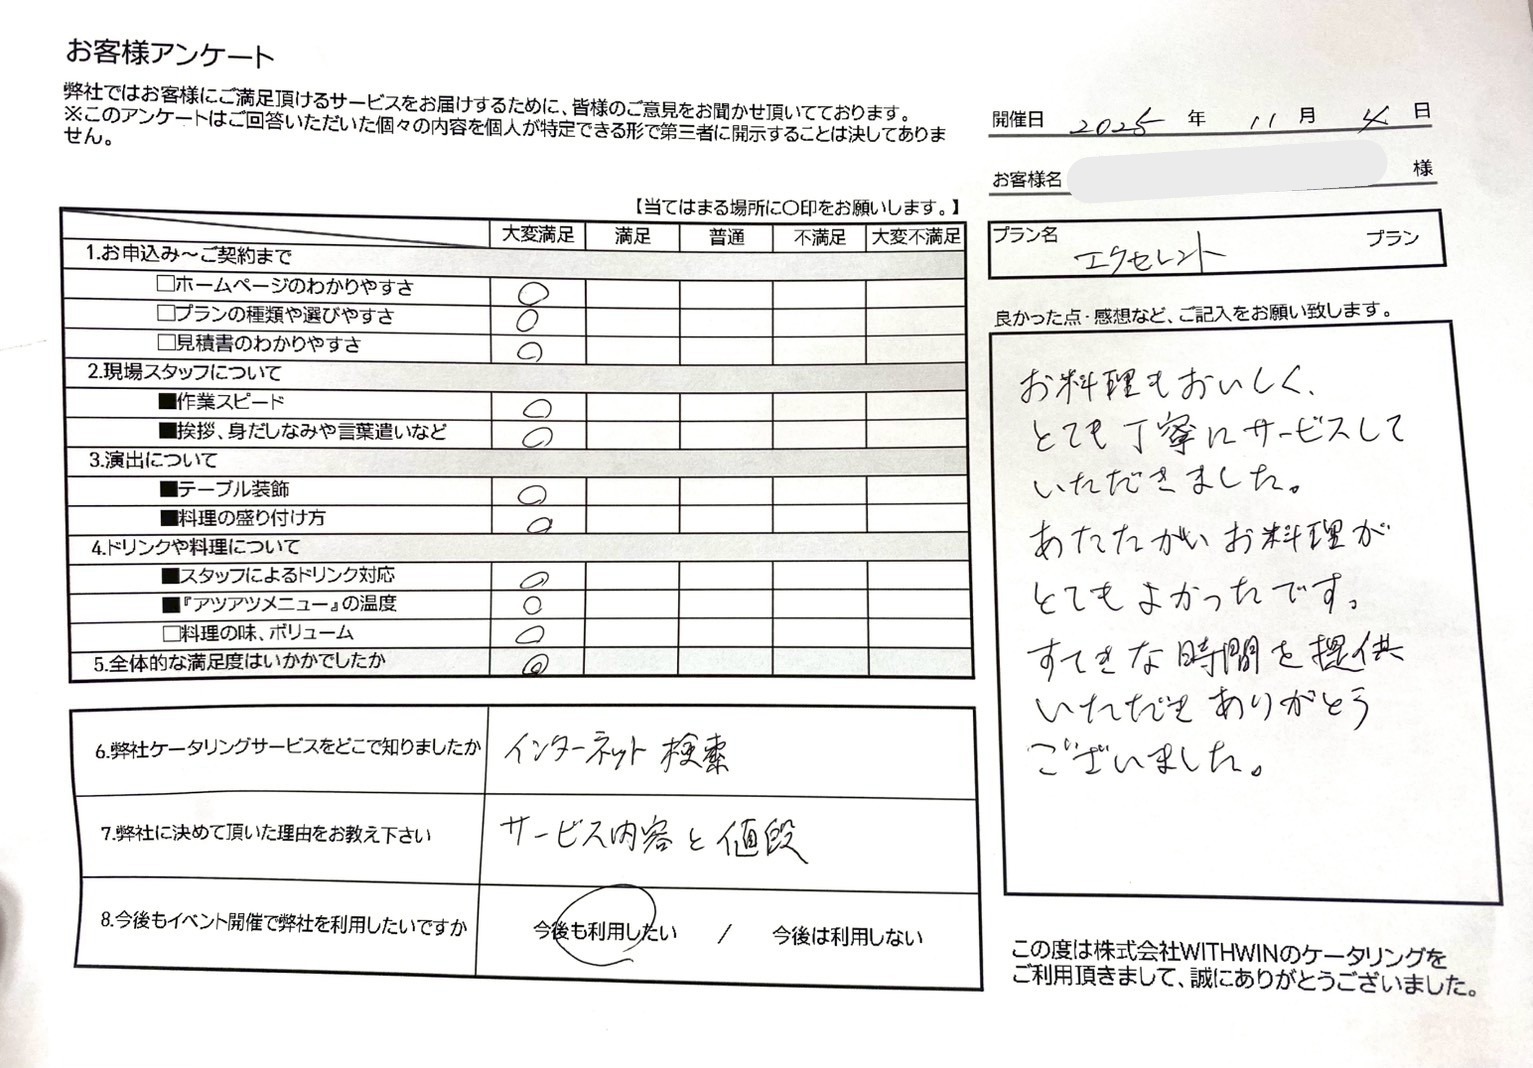 お客様アンケート
弊社ではお客様にご満足頂けるサービスをお届けするために、皆様のご意見をお聞かせ頂いてております。
※このアンケートはご回答いただいた個々の内容を個人が特定できる形で第三者に開示することは決してありま
せん。
開催日 2025 年 11 月 4 日
お客様名 様
【当てはまる場所に〇印をお願いします。】
大変満足 満足 普通 不満足 大変不満足
1.お申込み～ご契約まで
□ホームページのわかりやすさ ○
□プランの種類や選びやすさ ○
□見積書のわかりやすさ ○
2.現場スタッフについて
■作業スピード ○
■挨拶、身だしなみや言葉遣いなど ○
3.演出について
■テーブル装飾 ○
■料理の盛り付け方 ○
4.ドリンクや料理について
■スタッフによるドリンク対応 ○
■『アツアツメニュー』の温度 ○
□料理の味、ボリューム ○
5.全体的な満足度はいかかでしたか ◎
6.弊社ケータリングサービスをどこで知りましたか インターネット検索
7.弊社に決めて頂いた理由をお教え下さい サービス内容と値段
8.今後もイベント開催で弊社を利用したいですか 今後も利用したい / 今後は利用しない
プラン名 エクセレント プラン
良かった点・感想など、ご記入をお願い致します。
お料理もおいしく、
とても丁寧にサービスして
いただきました。
あたたかいお料理が
とてもよかったです。
すてきな時間を提供
いただきありがとう
ございました。
この度は株式会社WITHWINのケータリングを
ご利用頂きまして、誠にありがとうございました。